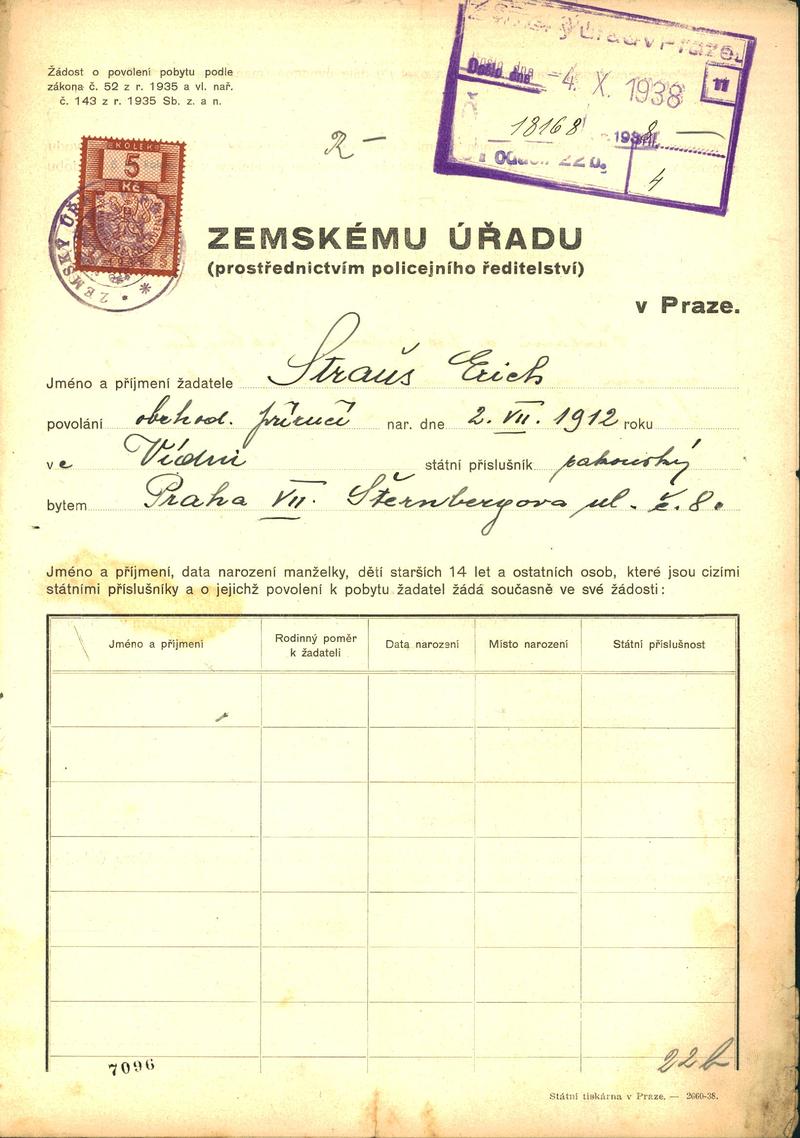 Žádost o povolení pobytu podle
zákona č. 52 z r. 1935 a vl. nař.
č. 143 z r. 1935 Sb. z. a n.
Zemský úřad v Praze
Došlo dne -4. X. 1938
11
13168 8 —
Odděl. 22 b.
4
R —
KOLEK
5
Kč
ZEMSKÝ ÚŘ
ZEMSKÉMU ÚŘADU
(prostřednictvím policejního ředitelství)
v Praze.
Jméno a příjmení žadatele Strauš Erich
povolání obchod. příručí nar. dne 2. VII. 1912 roku
ve Vídni státní příslušník rakouský
bytem Praha VII. Šternbergova ul. č. 8.
Jméno a příjmení, data narození manželky, dětí starších 14 let a ostatních osob, které jsou cizími
státními příslušníky a o jejichž povolení k pobytu žadatel žádá současně ve své žádosti:
Jméno a příjmení Rodinný poměr k žadateli Data narození Místo narození Státní příslušnost
7096
22b
Státní tiskárna v Praze. — 2660-38.